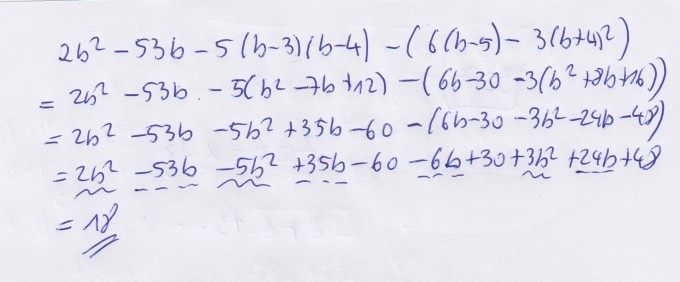 2b² - 53b - 5(b-3)(b-4) - (6(b-5) - 3(b+4)²)
= 2b² - 53b - 5(b² - 7b + 12) - (6b - 30 - 3(b² + 8b + 16))
= 2b² - 53b - 5b² + 35b - 60 - (6b - 30 - 3b² - 24b - 48)
= 2b² - 53b - 5b² + 35b - 60 - 6b + 30 + 3b² + 24b + 48
= 18